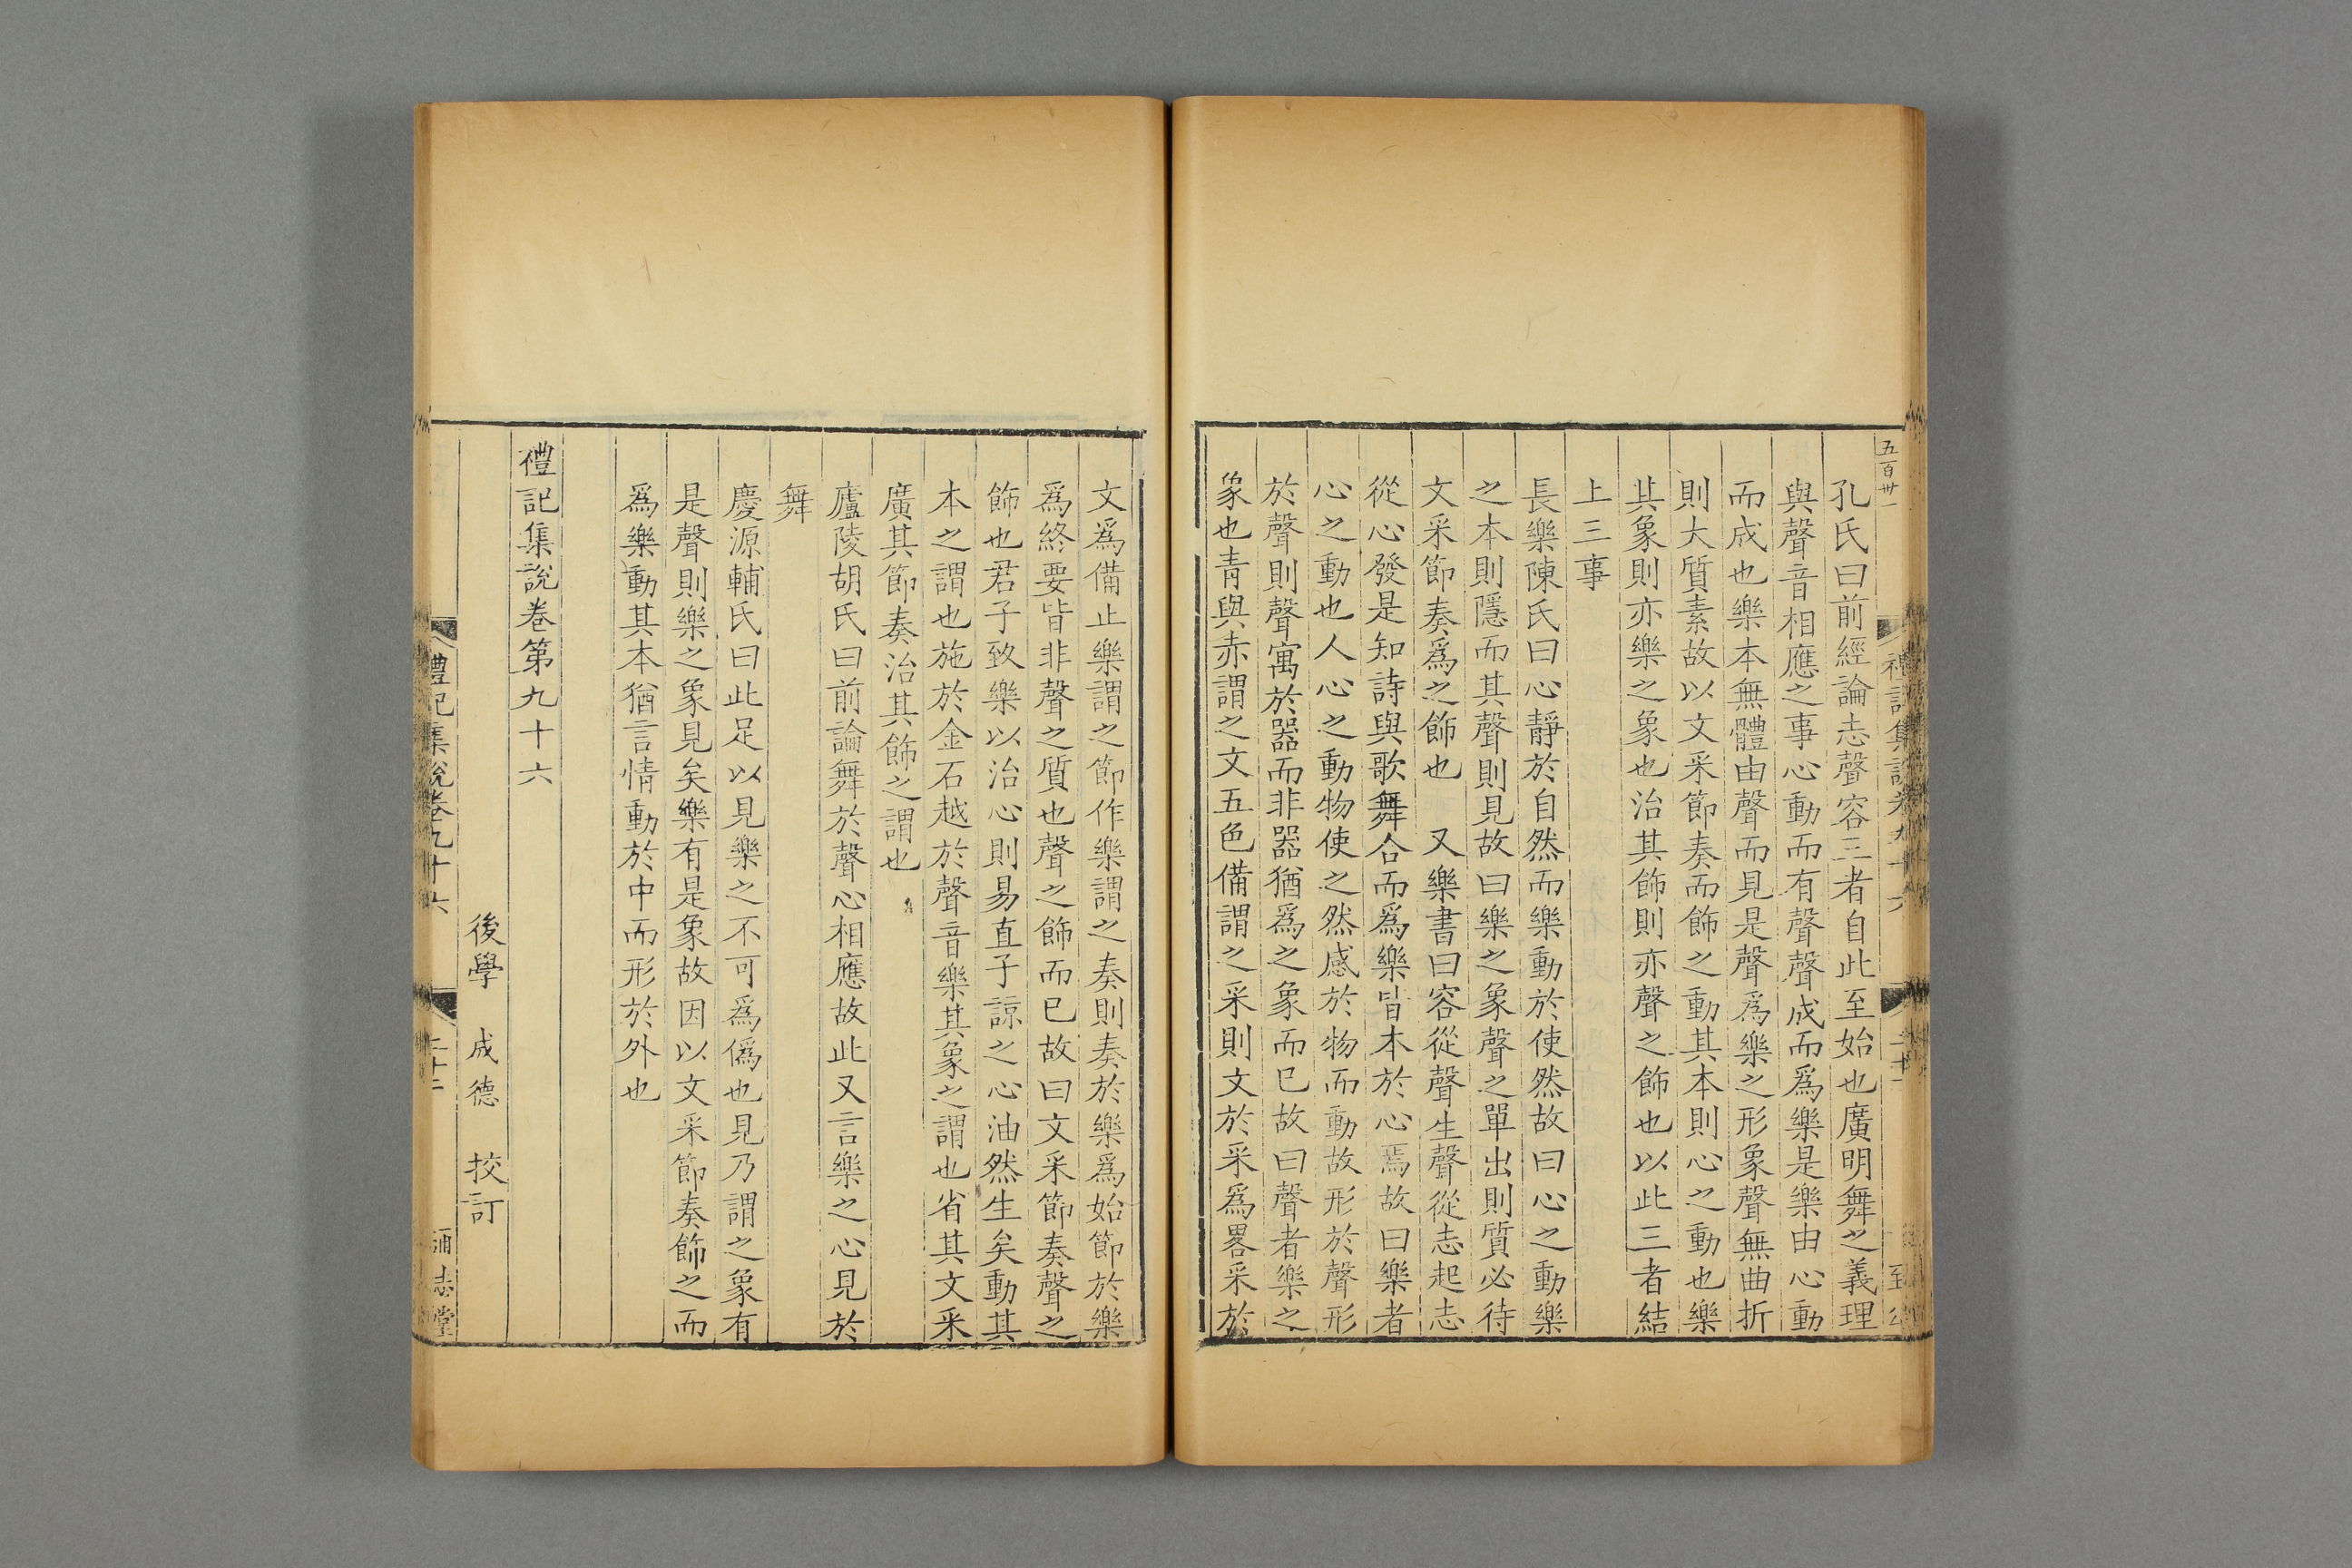 五百卅一
孔氏曰前經論志聲容三者自此至始也廣明舞之義理
與聲音相應之事心動而有聲聲成而爲樂是樂由心動
而成也樂本無體由聲而見是聲爲樂之形象聲無曲折
則大質素故以文采節奏而飾之動其本則心之動也樂
其象則亦樂之象也治其飾則亦聲之飾也以此三者結
上三事
長樂陳氏曰心靜於自然而樂動於使然故曰心之動樂
之本則隱而其聲則見故曰樂之象聲之單出則質必待
文采節奏爲之飾也　又樂書曰容從聲生聲從志起志
從心發是知詩與歌舞合而爲樂皆本於心焉故曰樂者
心之動也人心之動物使之然感於物而動故形於聲形
於聲則聲寓於器而非器猶爲之象而已故曰聲者樂之
象也青與赤謂之文五色備謂之采則文於采爲畧采於
文爲備止樂謂之節作樂謂之奏則奏於樂爲始節於樂
爲終要皆非聲之質也聲之飾而已故曰文采節奏聲之
飾也君子致樂以治心則易直子諒之心油然生矣動其
本之謂也施於金石越於聲音樂其象之謂也省其文采
廣其節奏治其飾之謂也
廬陵胡氏曰前論舞於聲心相應故此又言樂之心見於
舞
慶源輔氏曰此足以見樂之不可爲僞也見乃謂之象有
是聲則樂之象見矣樂有是象故因以文采節奏飾之而
爲樂動其本猶言情動於中而形於外也
禮記集說卷第九十六
後學　成德　挍訂
禮記集說卷九十六
通志堂